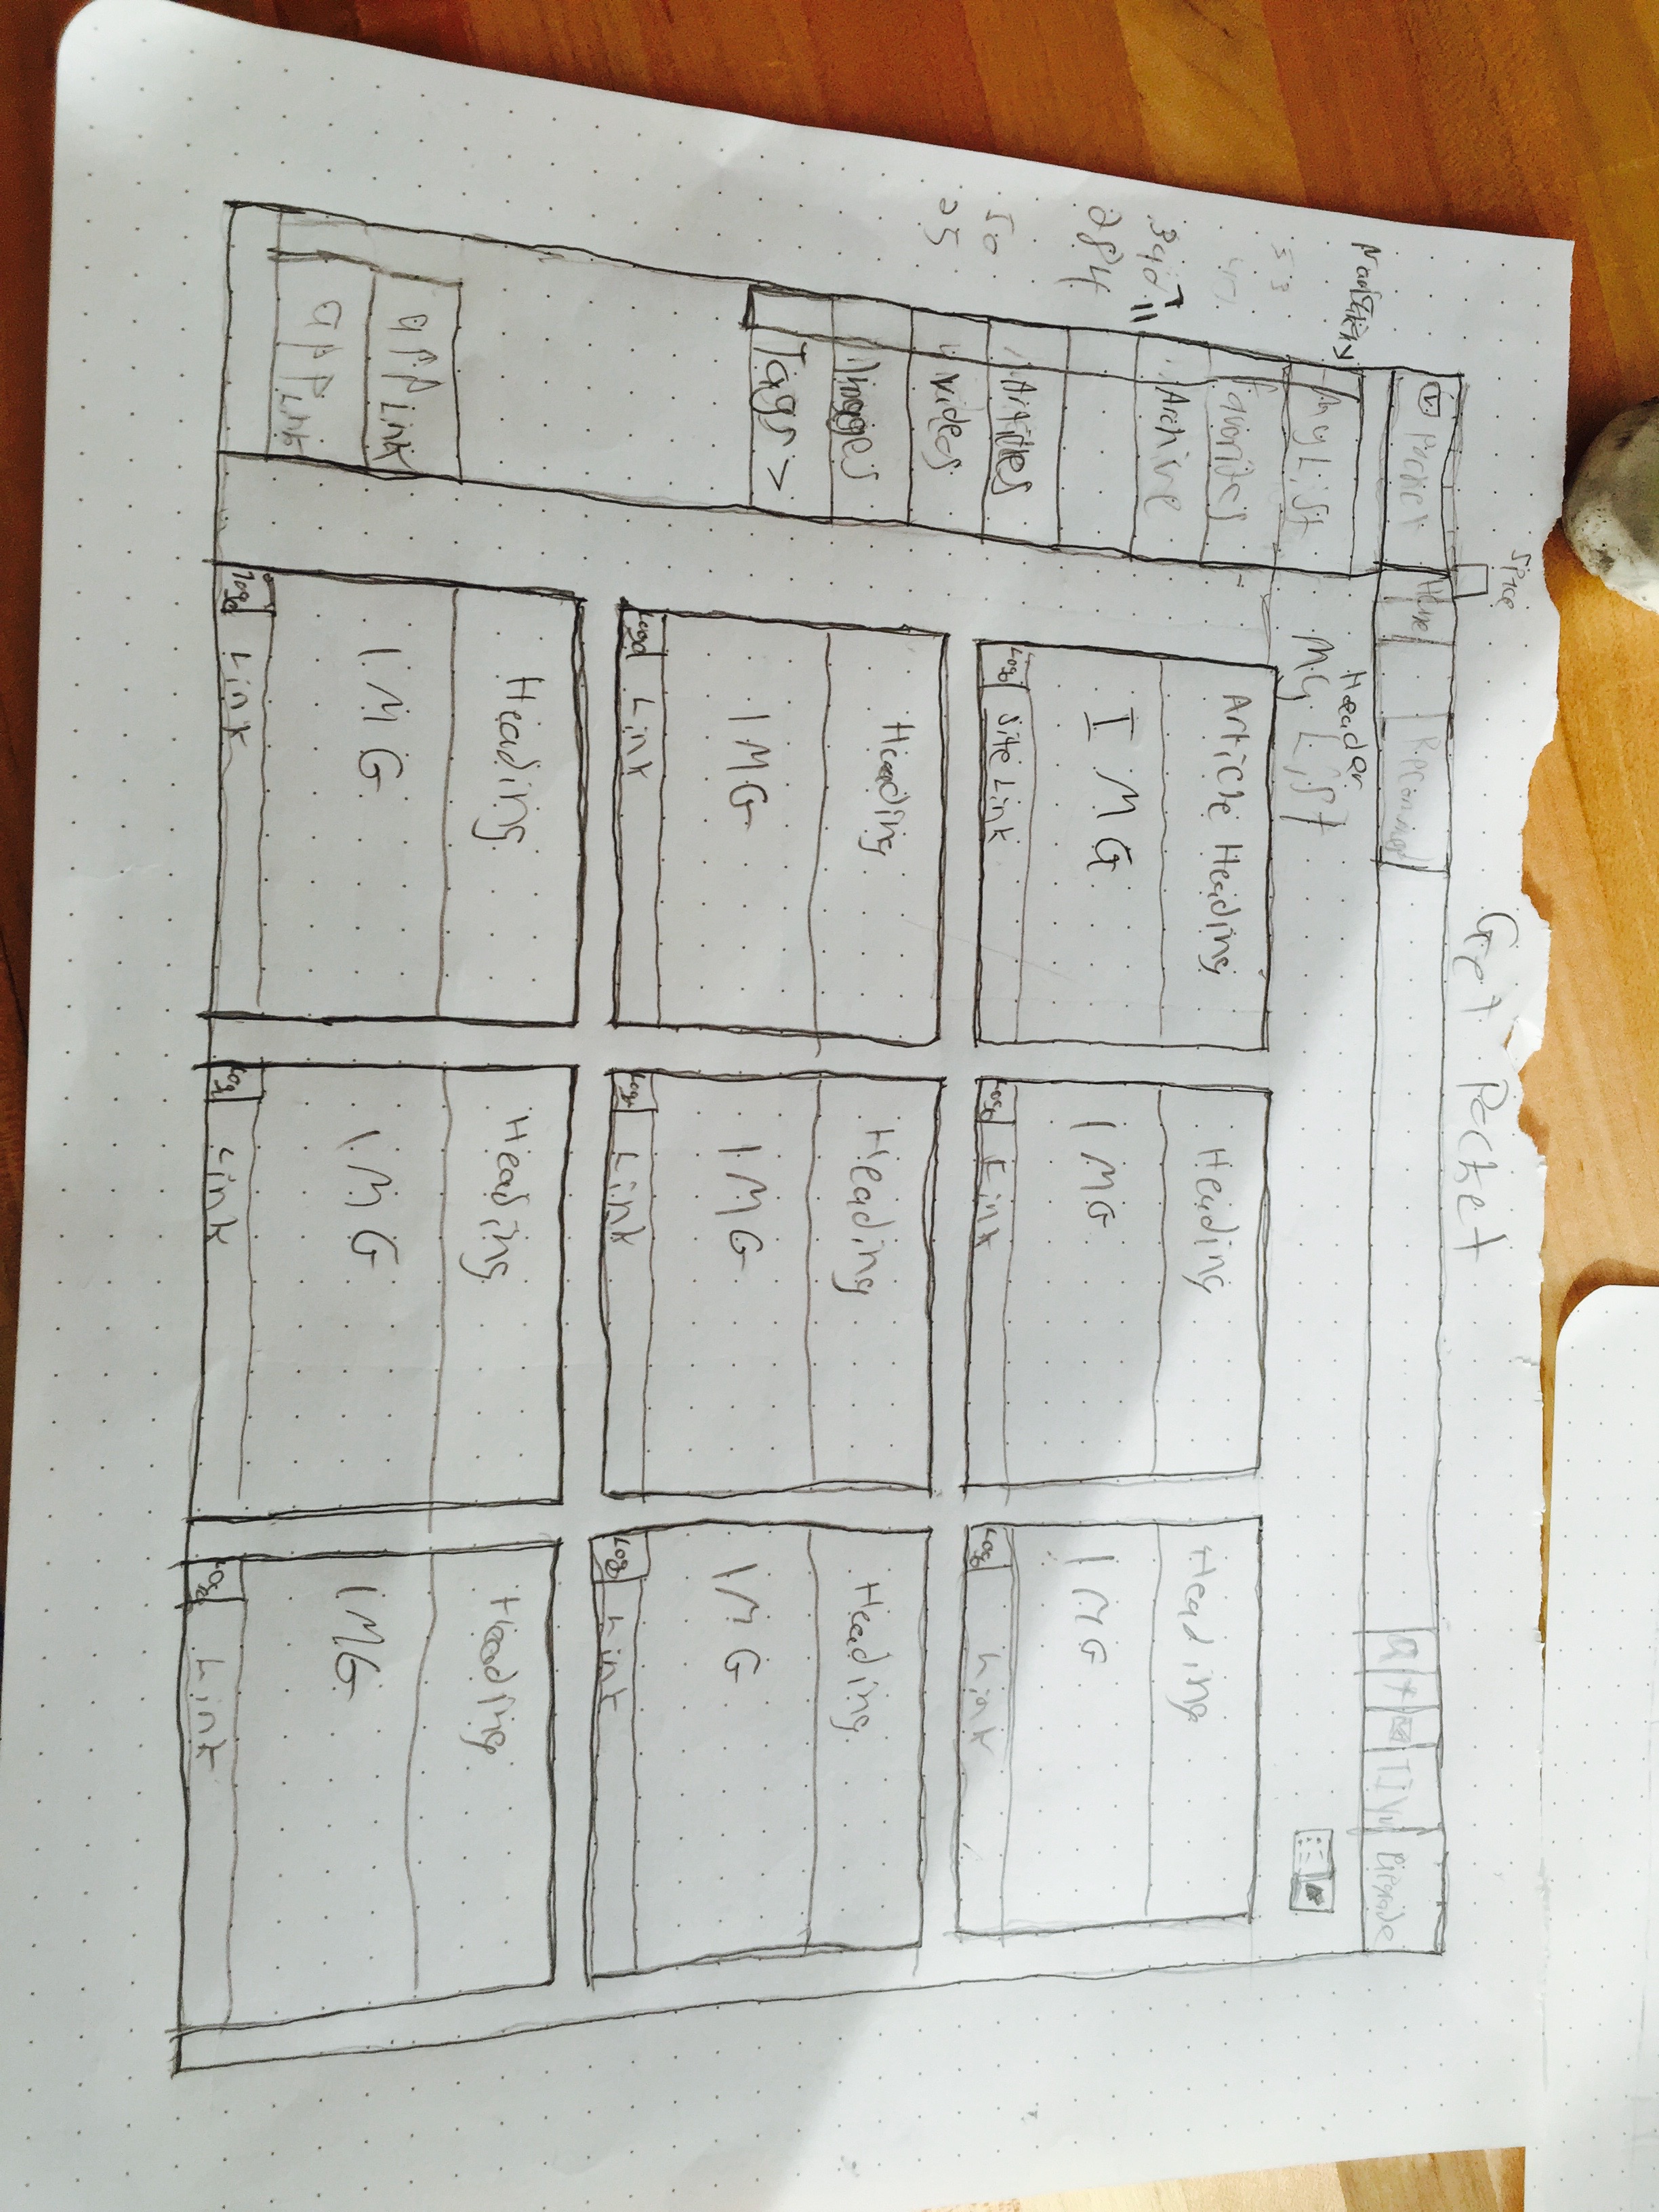 Get Pocket
Space
Pocket
Home
Upgrade
Header
My List
My List
Favorites
Archive
Articles
Videos
Images
Tags >
APP Link
APP Link
284
50
25
Article Heading
IMG
Logo Site Link
Heading
IMG
Logo Link
Heading
IMG
Logo Link
Heading
IMG
Logo Link
Heading
IMG
Logo Link
Heading
IMG
Logo Link
Heading
IMG
Logo Link
Heading
IMG
Logo Link
Heading
IMG
Logo Link